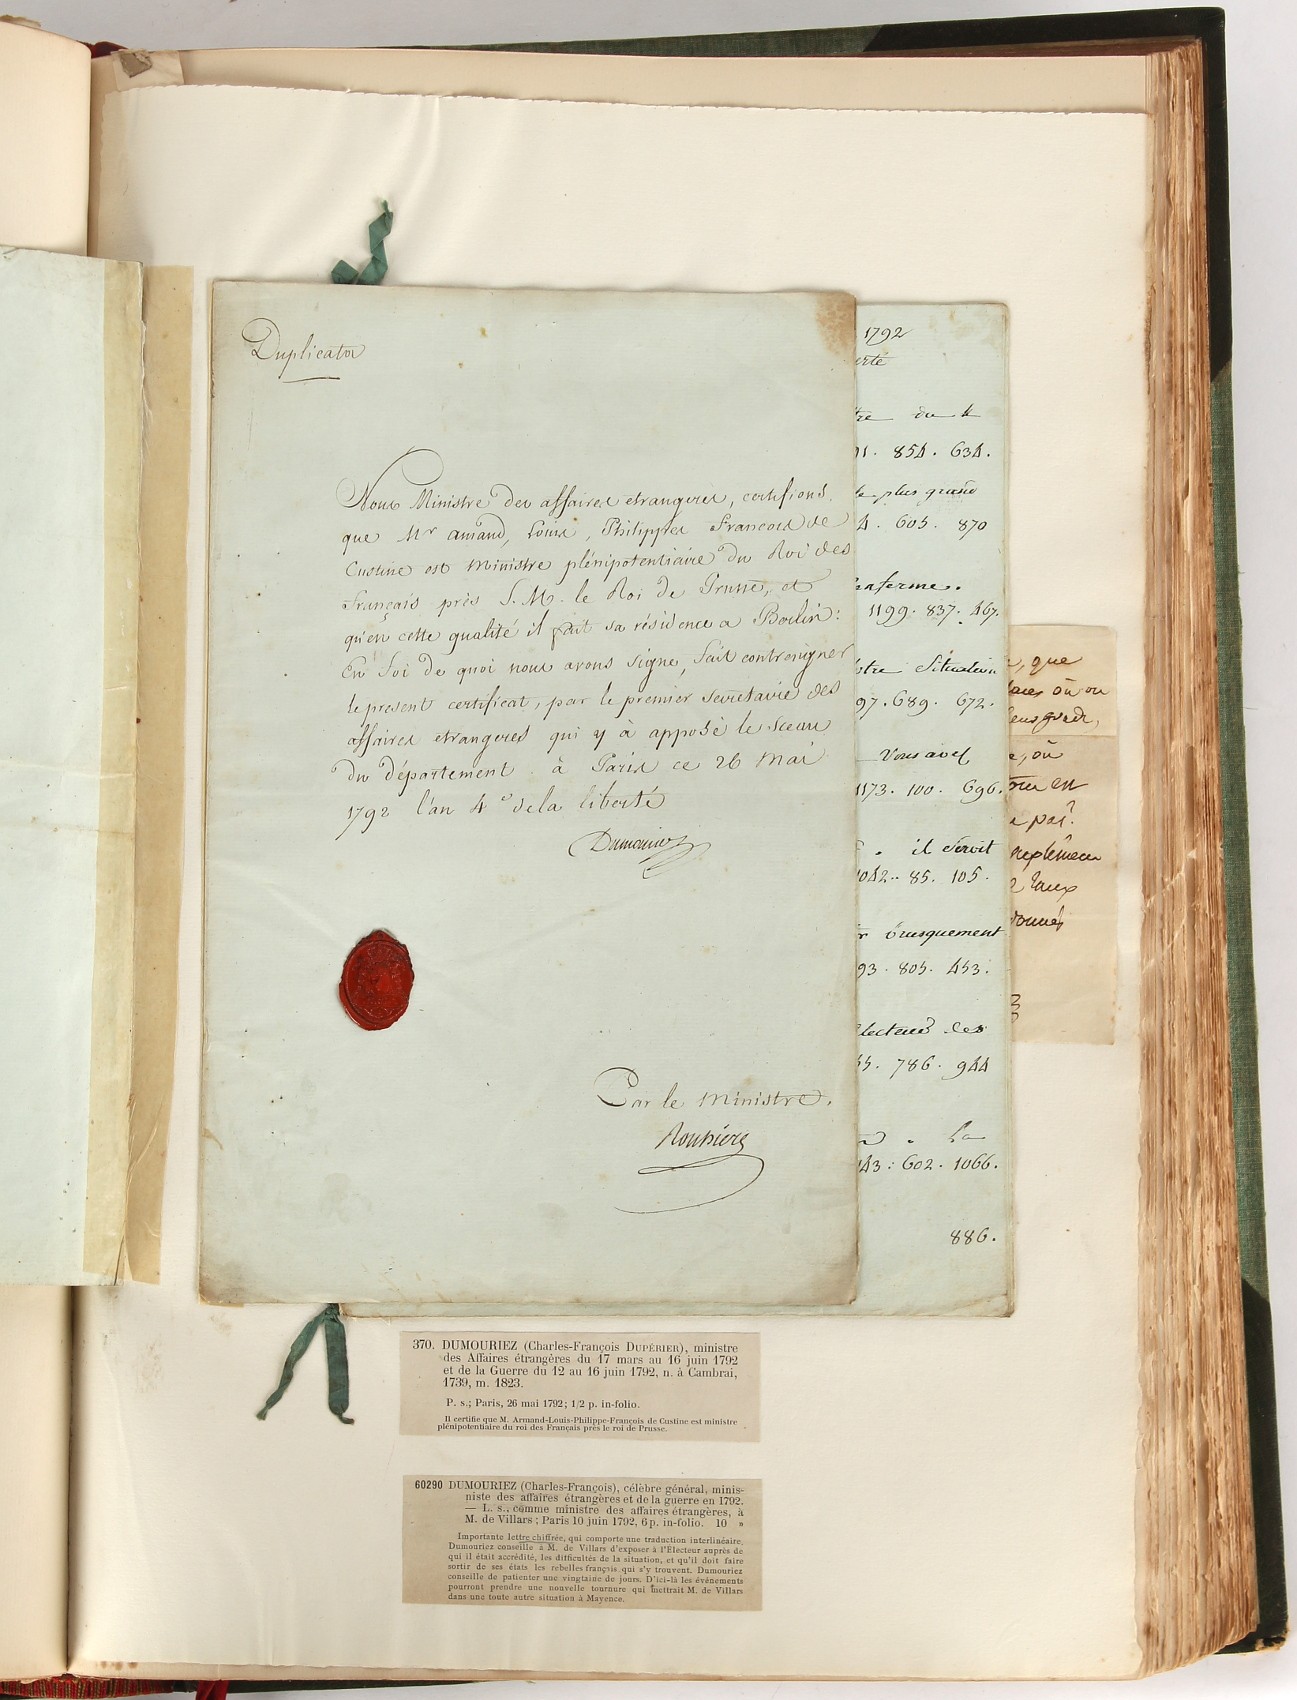 Duplicata
Nous Ministre des affaires etrangeres, certifions
que Mr amand, Louis, Philippes Francois de
Custine est Ministre plénipotentiaire du Roi des
Français près S. M. le Roi de Prusse, et
qu'en cette qualité il fait sa résidence a Berlin:
En foi de quoi nous avons signé, fait contresigner
le present certificat, par le premier secretaire des
affaires etrangeres qui y à apposé le Sceau
du département à Paris ce 26 Mai
1792 l'an 4e de la liberté
Dumouriez
Par le Ministre.
1792
erté
tre du
91. 854. 634.
le plus grand
4. 605. 870
enferme.
1199. 837. 467.
otre Situation
97. 689. 672.
Vous avez
1173. 100. 696.
. il seroit
1042.. 85. 105.
r brusquement
93. 805. 453.
lecteur des
786. 944
. la
143: 602. 1066.
886.
, que
ou on
e, où
en
a pas?
donnés
370. DUMOURIEZ (Charles-François DUPÉRIER), ministre
des Affaires étrangères du 17 mars au 16 juin 1792
et de la Guerre du 12 au 16 juin 1792, n. à Cambrai,
1739, m. 1823.
P. s.; Paris, 26 mai 1792; 1/2 p. in-folio.
Il certifie que M. Armand-Louis-Philippe-François de Custine est ministre
plénipotentiaire du roi des Français près le roi de Prusse.
60290 DUMOURIEZ (Charles-François), célèbre général, minis-
niste des affaires étrangères et de la guerre en 1792.
— L. s., comme ministre des affaires étrangères, à
M. de Villars; Paris 10 juin 1792, 6 p. in-folio. 10 »
Importante lettre chiffrée, qui comporte une traduction interlinéaire,
Dumouriez conseille à M. de Villars d'exposer à l'Électeur auprès de
qui il était accrédité, les difficultés de la situation, et qu'il doit faire
sortir de ses états les rebelles français qui s'y trouvent. Dumouriez
conseille de patienter une vingtaine de jours. D'ici-là les évènements
pourront prendre une nouvelle tournure qui mettrait M. de Villars
dans une toute autre situation à Mayence.